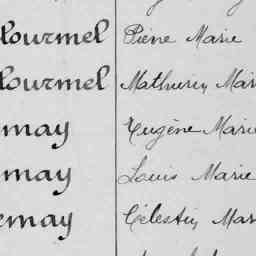 lourmel Pierre Marie
lourmel Mathurin Mari
may Eugène Marie
may Louis Marie
emay Célestin Mar